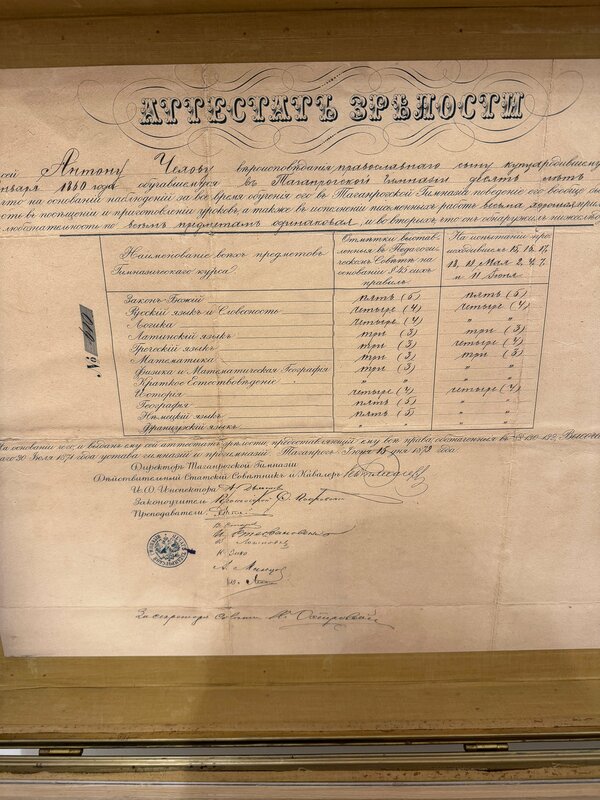 АТТЕСТАТЪ ЗРѢЛОСТИ
сей Антону Чехову вѣроисповѣданія православнаго, сыну купца, родившемуся
января 1860 года обучавшемуся въ Таганрогской Гимназіи десять лѣтъ
что на основаніи наблюденій за все время обученія его въ Таганрогской Гимназіи поведеніе его вообще было
въ посѣщеніи и приготовленіи уроковъ, а также въ исполненіи письменныхъ работъ весьма хороша
любознательность по всѣмъ предметамъ одинаковая, и во вторыхъ, что онъ обнаружилъ нижеслѣ
Наименованіе всѣхъ предметовъ Гимназическаго курса.
Отмѣтки выставленныя въ Педагогическомъ Совѣтѣ на основаніи § 45 сихъ правилъ
На испытаніи произведенномъ 15, 16, 17, 18, 19 Мая 2, 4, 7, и 11 Іюня
Законъ Божій пять (5) пять (5)
Русскій языкъ и Словесность четыре (4) четыре (4)
Логика четыре (4) "
Латинскій языкъ три (3) три (3)
Греческій языкъ три (3) четыре (4)
Математика три (3) три (3)
Физика и Математическая Географія три (3) "
Краткое Естествовѣденіе " "
Исторія четыре (4) четыре (4)
Географія пять (5) "
Нѣмецкій языкъ пять (5) "
Французскій языкъ " "
№
На основаніи чего и выданъ ему сей аттестатъ зрѣлости, предоставляющій ему всѣ права, обозначенныя въ §§ 130-132, Высочай
30 Іюля 1871 года устава гимназій и прогимназій. Таганрогъ Іюня 15 дня 1879 года.
Директоръ Таганрогской Гимназіи
Дѣйствительный Статскій Совѣтникъ и Кавалеръ
И. О. Инспектора А. Дьяконовъ
Законоучитель Протоіерей Ѳ. Покровскій
Преподаватели:
За секретаря Совѣта